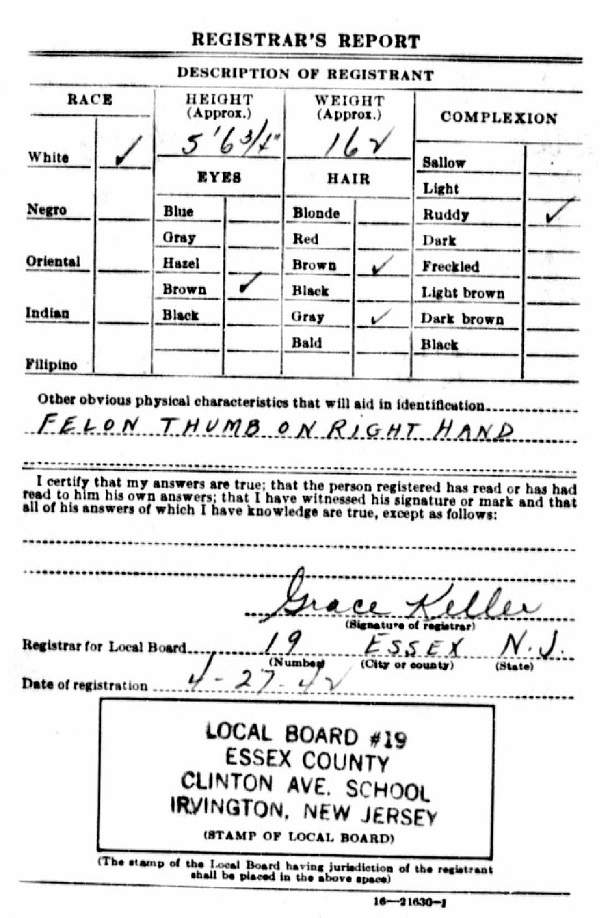 REGISTRAR'S REPORT
DESCRIPTION OF REGISTRANT
RACE
HEIGHT (Approx.)
WEIGHT (Approx.)
COMPLEXION
5' 6 3/4"
162
White ✓
EYES
HAIR
Sallow
Light
Negro
Blue
Blonde
Ruddy ✓
Gray
Red
Dark
Oriental
Hazel
Brown ✓
Freckled
Brown ✓
Black
Light brown
Indian
Black
Gray ✓
Dark brown
Bald
Black
Filipino
Other obvious physical characteristics that will aid in identification
FELON THUMB ON RIGHT HAND
I certify that my answers are true; that the person registered has read or has had
read to him his own answers; that I have witnessed his signature or mark and that
all of his answers of which I have knowledge are true, except as follows:
Grace Keller
(Signature of registrar)
Registrar for Local Board 19 ESSEX N.J.
(Number) (City or county) (State)
Date of registration 4-27-42
LOCAL BOARD #19
ESSEX COUNTY
CLINTON AVE. SCHOOL
IRVINGTON, NEW JERSEY
(STAMP OF LOCAL BOARD)
(The stamp of the Local Board having jurisdiction of the registrant
shall be placed in the above space)
16—21630-1